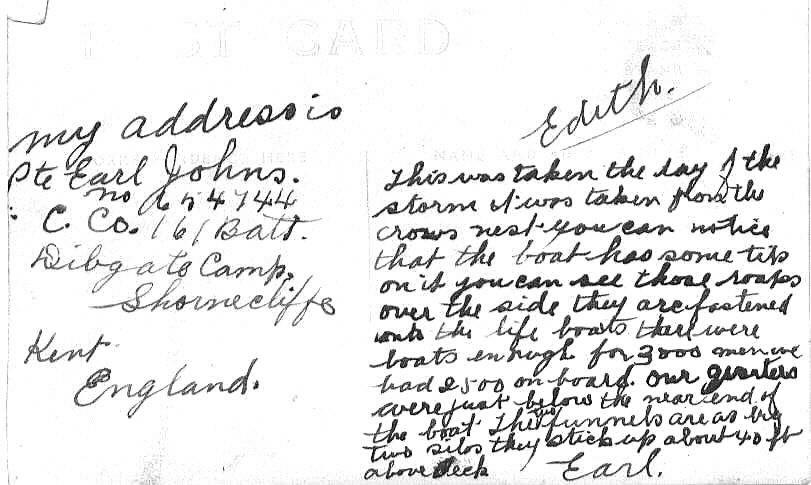 POST CARD
my address is
Pte Earl Johns.
no 654744
C. Co. 161 Batt.
Dibgate Camp,
Shornecliffe
Kent
England.
Edith.
This was taken the day of the
storm it was taken from the
crows nest you can notice
that the boat has some tip
on it you can see those roaps
over the side they are fastened
onto the life boats there were
boats enough for 3000 men we
had 2500 on board. our quarters
were just below the near end of
the boat. The two funnels are as big
two silos they stick up about 40 ft
above deck
Earl.